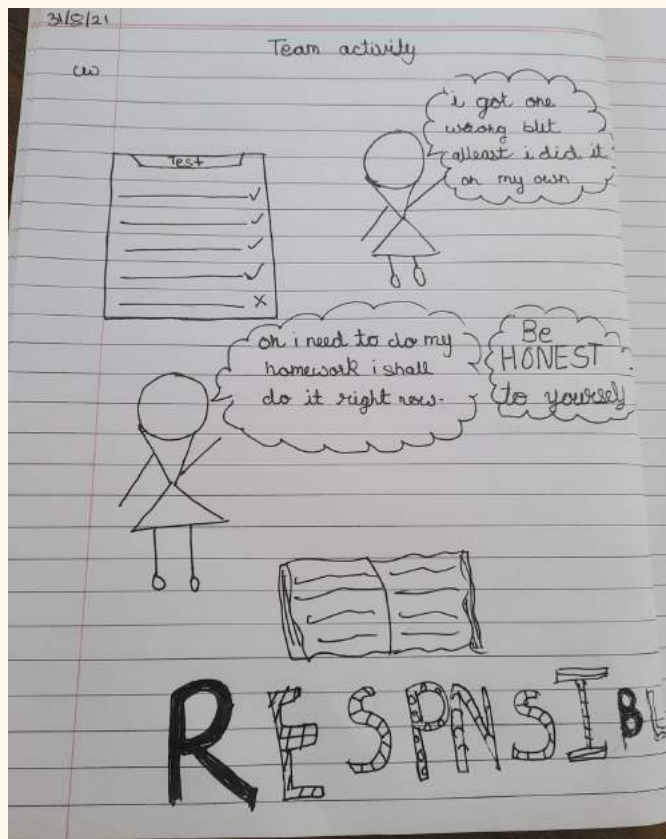 31/8/21
Team activity
cw
i got one
wrong but
atleast i did it
on my own
Test
oh i need to do my
homework i shall
do it right now.
Be
HONEST
to yourself
RESPNSIBL